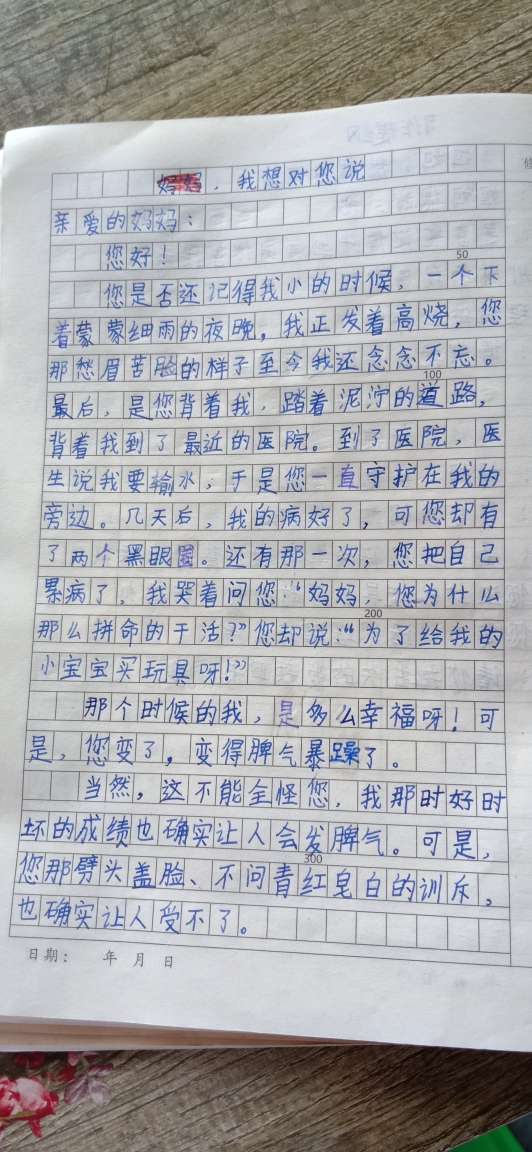 妈妈，我想对您说
亲爱的妈妈：
您好！
50
您是否还记得我小的时候，一个下
着蒙蒙细雨的夜晚，我正发着高烧，您
那愁眉苦脸的样子至今我还念念不忘。
100
最后，是您背着我，踏着泥泞的道路，
背着我到了最近的医院。到了医院，医
生说我要输水，于是您一直守护在我的
旁边。几天后，我的病好了，可您却有
了两个黑眼圈。还有那一次，您把自己
累病了，我哭着问您：“妈妈，您为什么
200
那么拼命的干活？”您却说：“为了给我的
小宝宝买玩具呀！”
那个时候的我，是多么幸福呀！可
是，您变了，变得脾气暴躁了。
当然，这不能全怪您，我那时好时
坏的成绩也确实让人会发脾气。可是，
300
您那劈头盖脸、不问青红皂白的训斥，
也确实让人受不了。
日期： 年 月 日